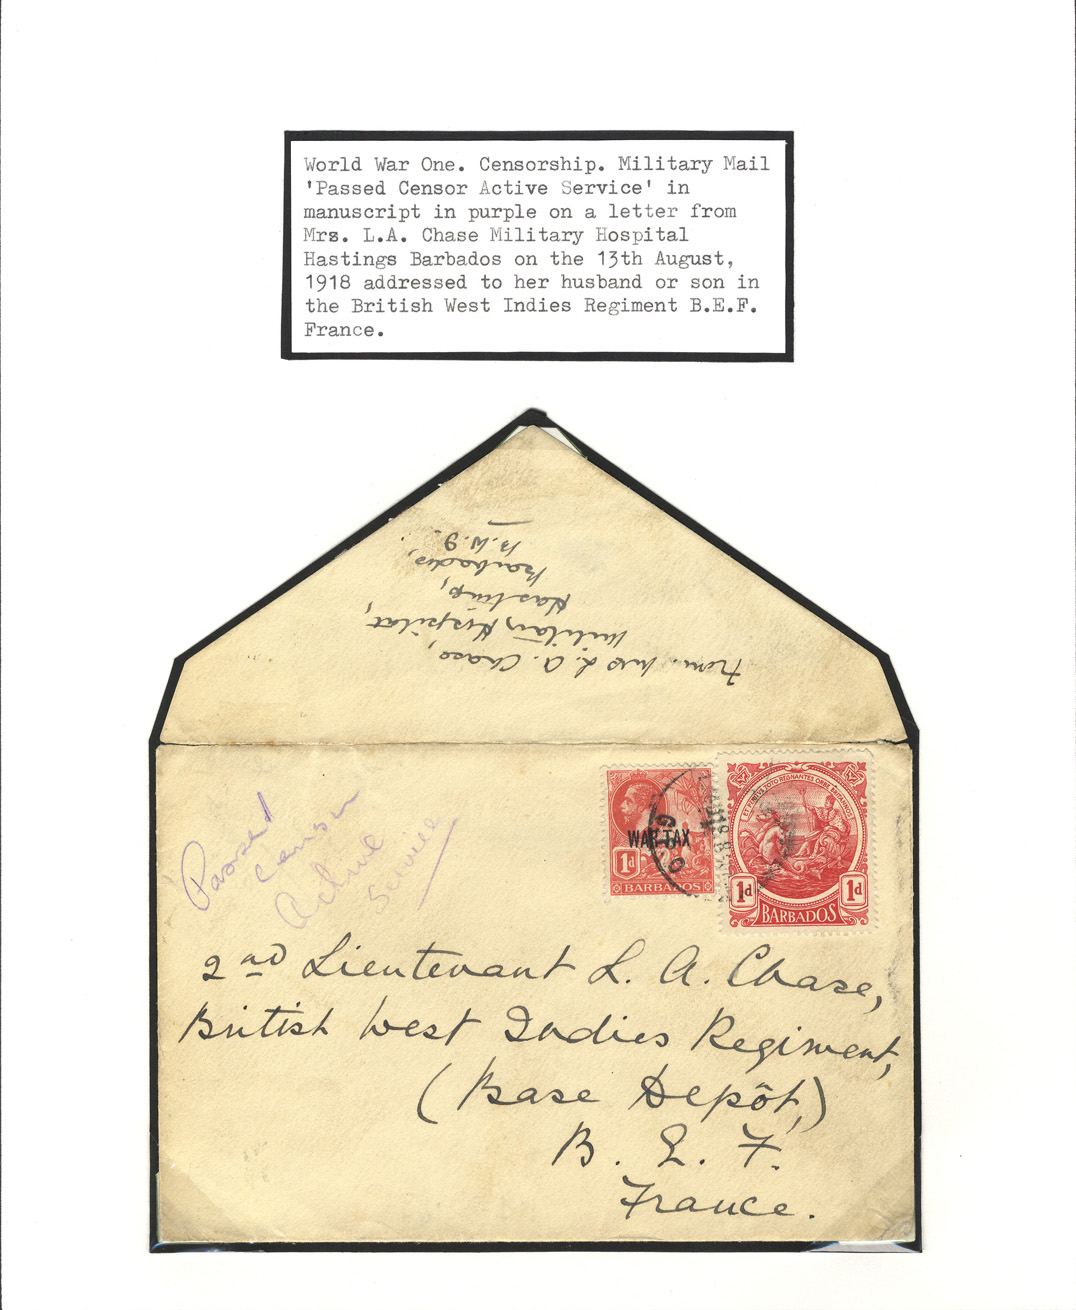 World War One. Censorship. Military Mail
'Passed Censor Active Service' in
manuscript in purple on a letter from
Mrs. L.A. Chase Military Hospital
Hastings Barbados on the 13th August,
1918 addressed to her husband or son in
the British West Indies Regiment B.E.F.
France.
from. Mrs L. A. Chase,
Military Hospital,
Hastings,
Barbados,
B.W.I.
Passed
Censor
Active
Service
WAR TAX
1d
BARBADOS
G.P.O
ET PENITUS TOTO REGNANTES ORBE BRITANNOS
1d 1d
BARBADOS
2nd Lieutenant L. A. Chase,
British West Indies Regiment,
(Base Depôt,)
B. E. F.
France.